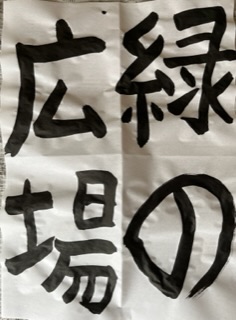 緑の
広場